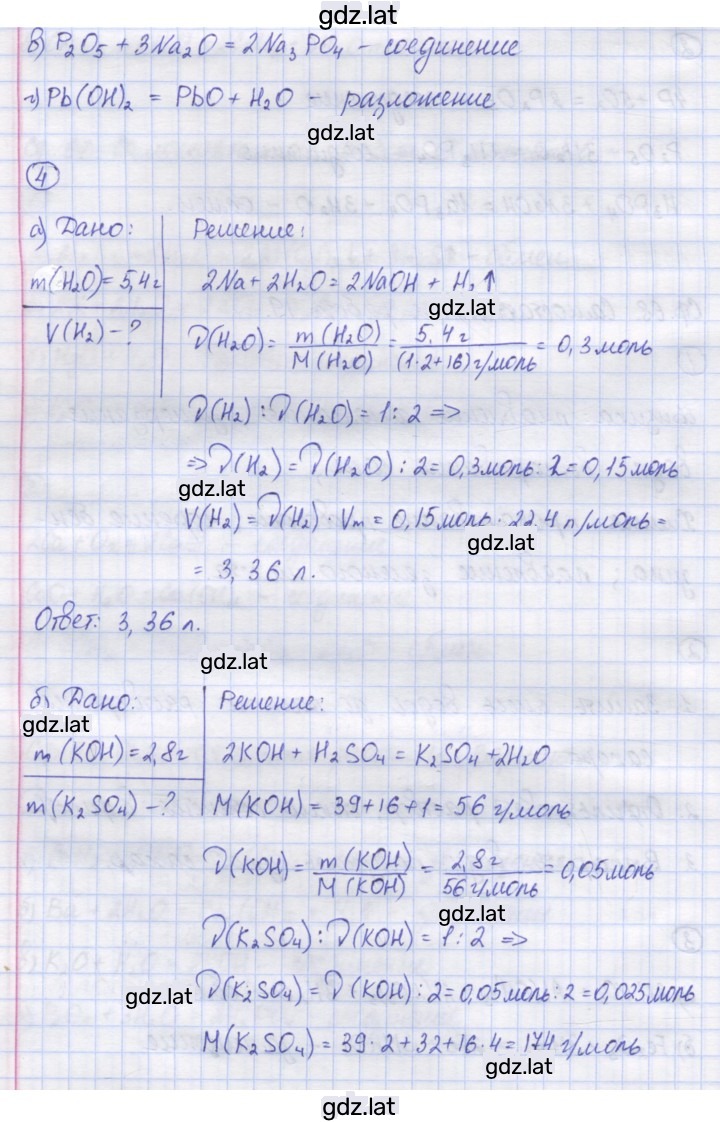 gdz.lat
в) P₂O₅ + 3Na₂O = 2Na₃PO₄ - соединение
г) Pb(OH)₂ = PbO + H₂O - разложение
gdz.lat
④
а) Дано:
m(H₂O) = 5,4г
V(H₂) - ?
Решение:
2Na + 2H₂O = 2NaOH + H₂↑
gdz.lat
ν(H₂O) = m(H₂O)/M(H₂O) = 5,4г/(1·2+16)г/моль = 0,3моль
ν(H₂) : ν(H₂O) = 1 : 2 =>
=> ν(H₂) = ν(H₂O) : 2 = 0,3моль : 2 = 0,15моль
gdz.lat
V(H₂) = ν(H₂) · Vm = 0,15моль · 22.4 л/моль =
gdz.lat
= 3,36 л.
Ответ: 3,36 л.
gdz.lat
б) Дано:
gdz.lat
m(KOH) = 2,8г
m(K₂SO₄) - ?
Решение:
2KOH + H₂SO₄ = K₂SO₄ + 2H₂O
M(KOH) = 39+16+1 = 56 г/моль
ν(KOH) = m(KOH)/M(KOH) = 2,8г/56г/моль = 0,05моль
gdz.lat
ν(K₂SO₄) : ν(KOH) = 1 : 2 =>
gdz.lat
ν(K₂SO₄) = ν(KOH) : 2 = 0,05моль : 2 = 0,025моль
M(K₂SO₄) = 39·2+32+16·4 = 174 г/моль
gdz.lat
gdz.lat